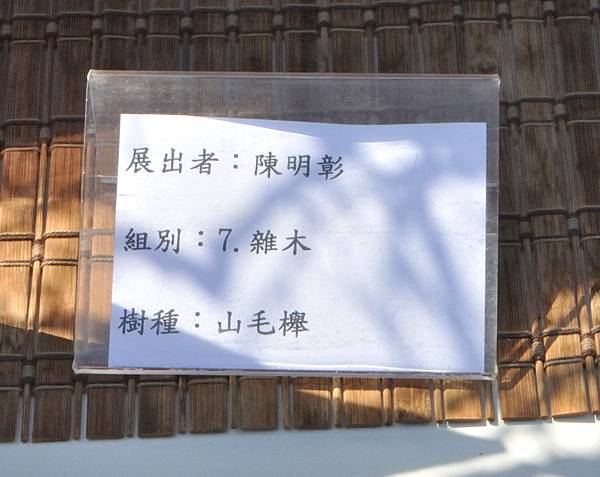 展出者：陳明彰
組別：7. 雜木
樹種：山毛櫸